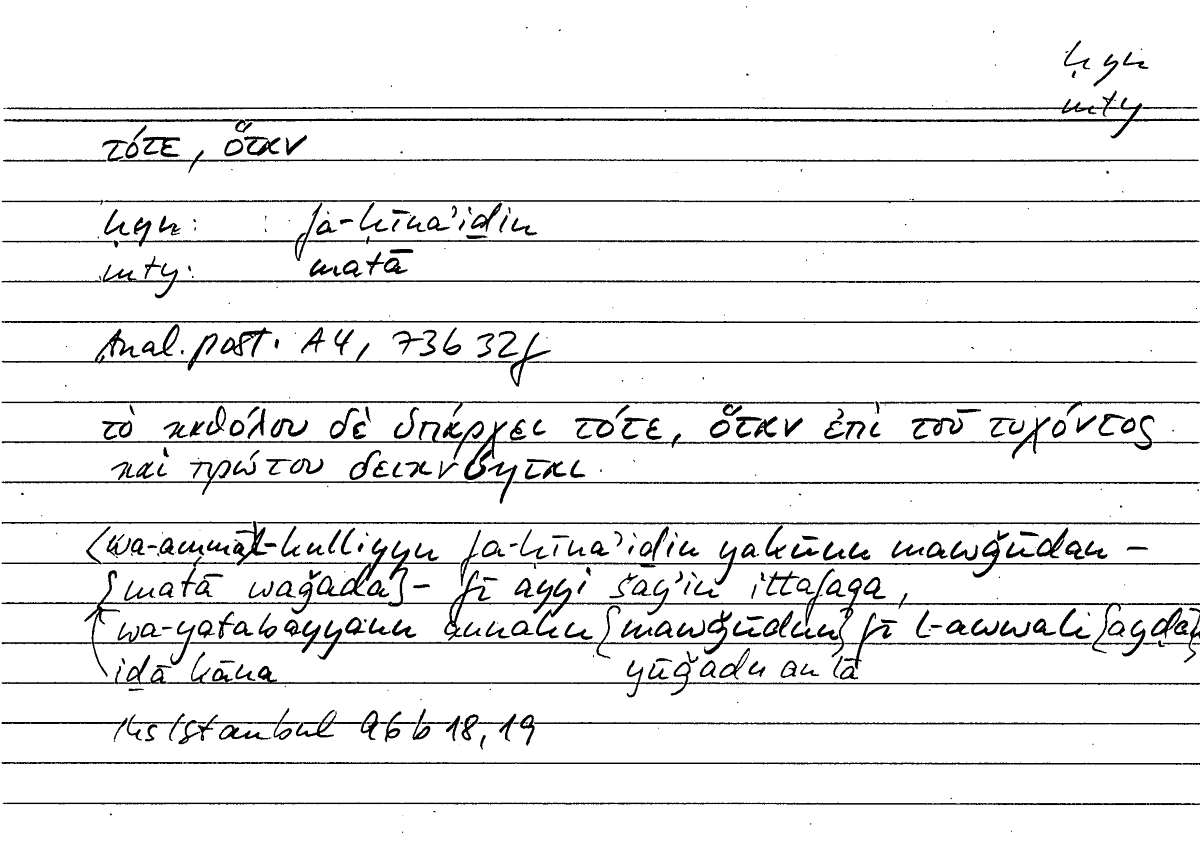 ḥyn
mty
τότε, ὅταν
ḥyn: fa-ḥīna'iḏin
mty: matā
Anal. post. A4, 73b 32f
τὸ καθόλου δὲ ὑπάρχει τότε, ὅταν ἐπὶ τοῦ τυχόντος
καὶ πρώτου δεικνύηται.
<wa-ammā> l-kulliyyu fa-ḥīna'iḏin yakūnu mawǧūdan –
{matā waǧada} – fī ayyi šay'in ittafaqa,
wa-yatabayyanu annahu {mawǧūdun} fī l-awwali {ayḍan}
iḏā kāna yūǧadu an lā
Hs Istanbul 96b 18,19